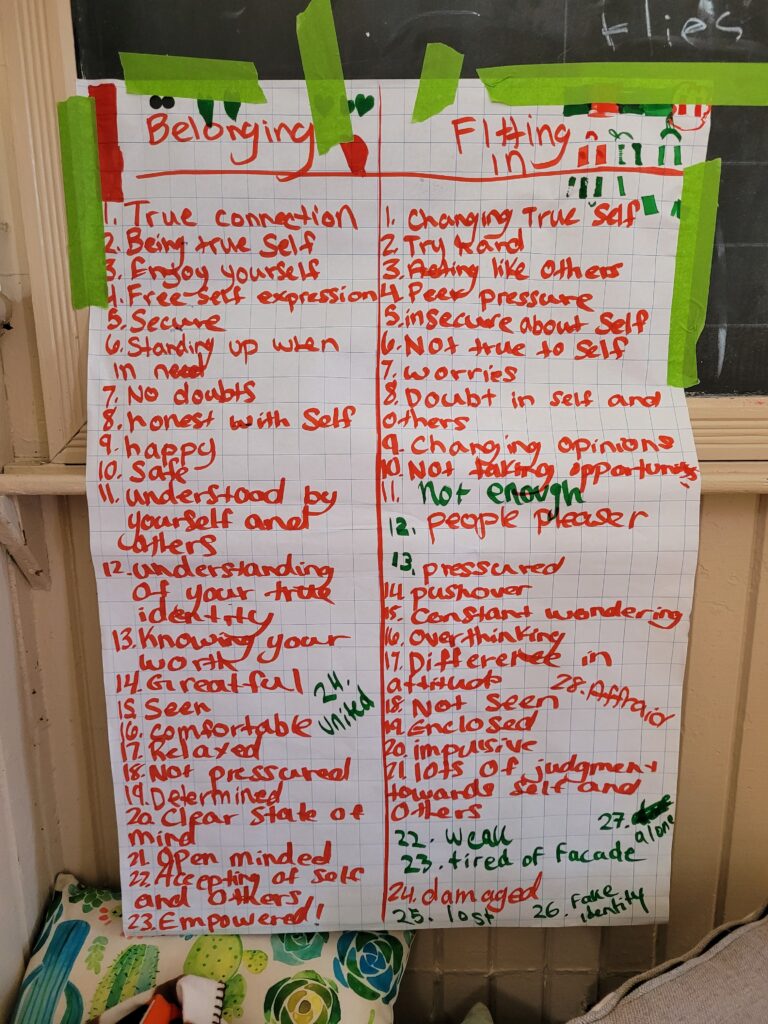 flies
Belonging
1. True connection
2. Being true Self
3. Enjoy yourself
4. Free self expression
5. Secure
6. Standing up when
in need
7. No doubts
8. honest with Self
9. happy
10. Safe
11. understood by
yourself and
others
12. understanding
of your true
identity
13. Knowing your
worth
14. Greatful
15. Seen
16. comfortable
17. Relaxed
18. Not pressured
19. Determined
20. Clear State of
mind
21. Open minded
22. Accepting of self
and others
23. Empowered!
24.
united
Fitting
in
1. Changing True Self
2. Try hard
3. Acting like others
4. Peer pressure
5. insecure about Self
6. Not true to self
7. worries
8. Doubt in self and
others
9. Changing opinions
10. Not taking
11. Not enough
12. people pleaser
13. pressured
14. pushover
15. Constant wondering
16. Overthinking
17. Difference in
18. Not Seen
19. Enclosed
20. impulsive
21. lots of judgment
towards self and
others
22. weak
23. tired of facade
24. damaged
25. lost
26. Fake
identity
27.
alone
28. Affraid